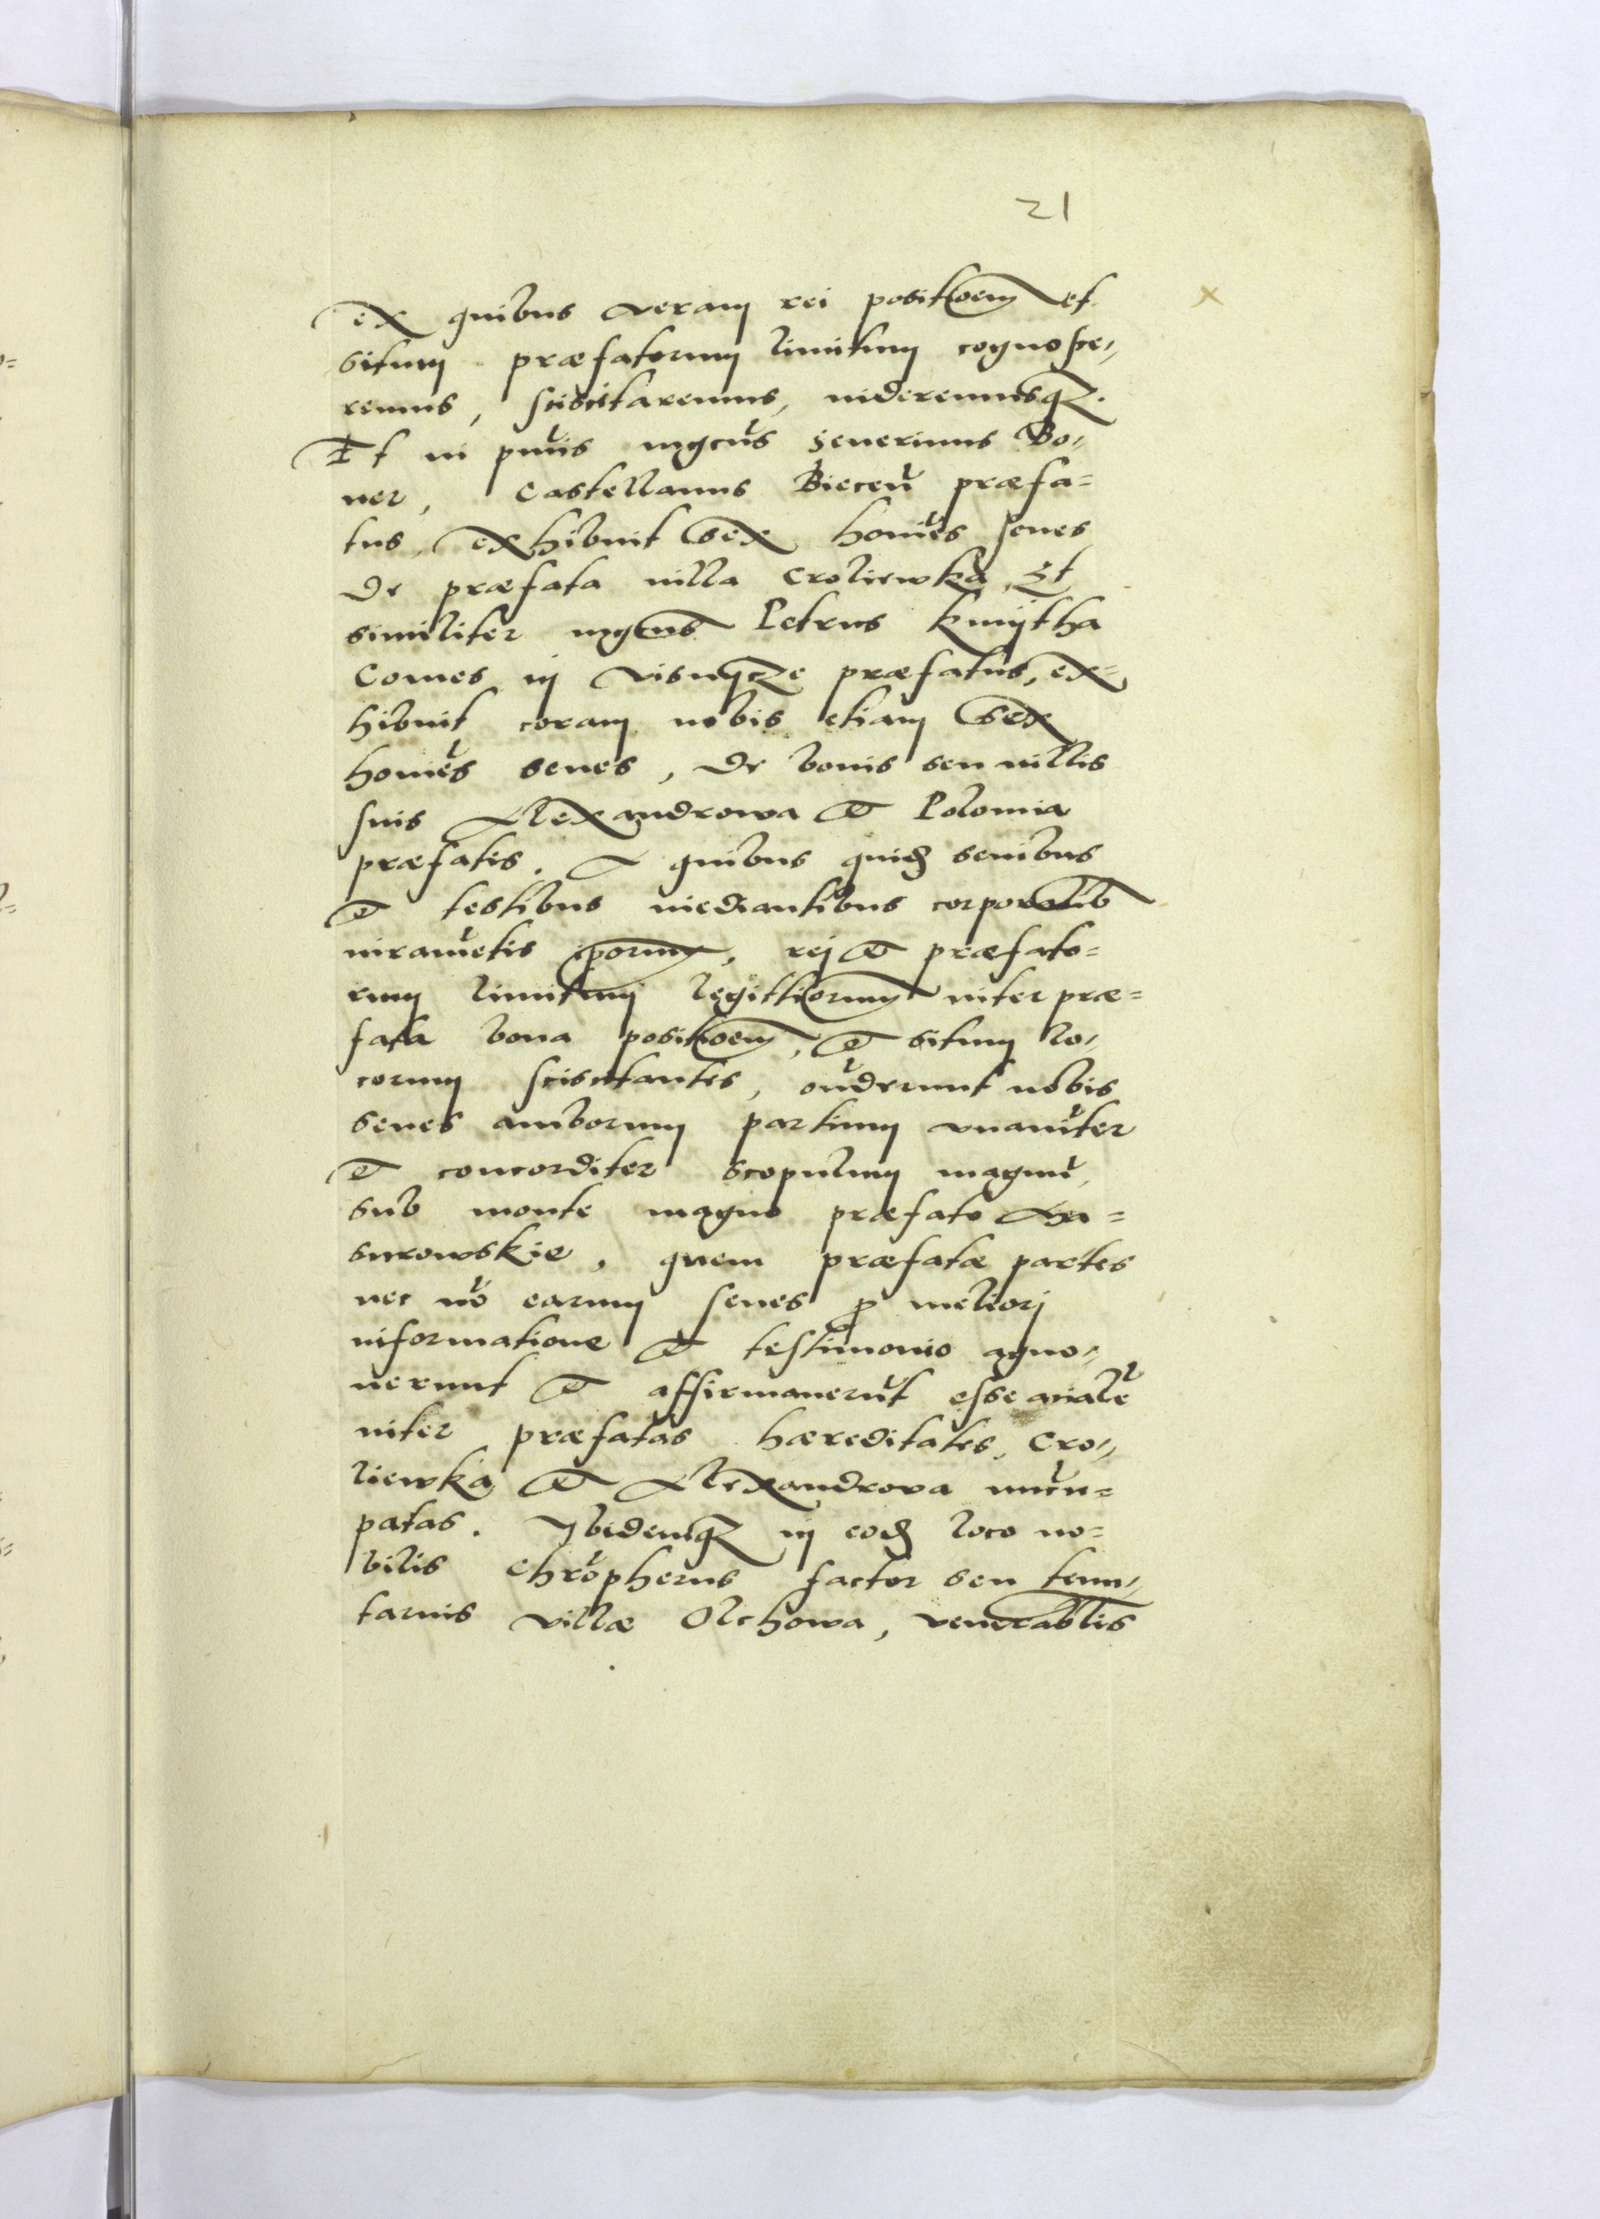 21
ex quibus veram rei positioem et
situm præfatorum limitum cognosce,,
remus, sciscitaremus, uideremusqz.
Et in pmis mgcus Seuerinus Bo,,
ner, Castellanus Biecen præfa=
tus, exhibuit sex homies senes
de præfata uilla Croliewka, Et
similiter mgcus Petrus Kmytha
Comes in Visnycze præfatus, ex=
hibuit coram nobis etiam sex
homies senes, de bonis seu uillis
suis Alexandrowa et Polomia
præfatis. A quibus quid senibus
et testibus mediantibus corporalib
iurametis ipsorum, rei et præfato=
rum limitum legittiorum inter præ=
fata bona positioem, et situm lo,,
corum sciscitantes, onderunt nobis
senes amborum partium vnanimiter
et concorditer scopulum magnu,
sub monte magno præfato
surowskie, quem præfatæ partes
nec no earum senes p meliori
informatione et testimonio agno,,
uerunt et affirmauerut esse
inter præfatas hæreditates, Cro,,
liewka et Alexandrova nucu=
patas. Ybidemqz in eod loco no=
bilis Chropherus factor seu tenu,,
tarius villæ Olchowa, venerablis